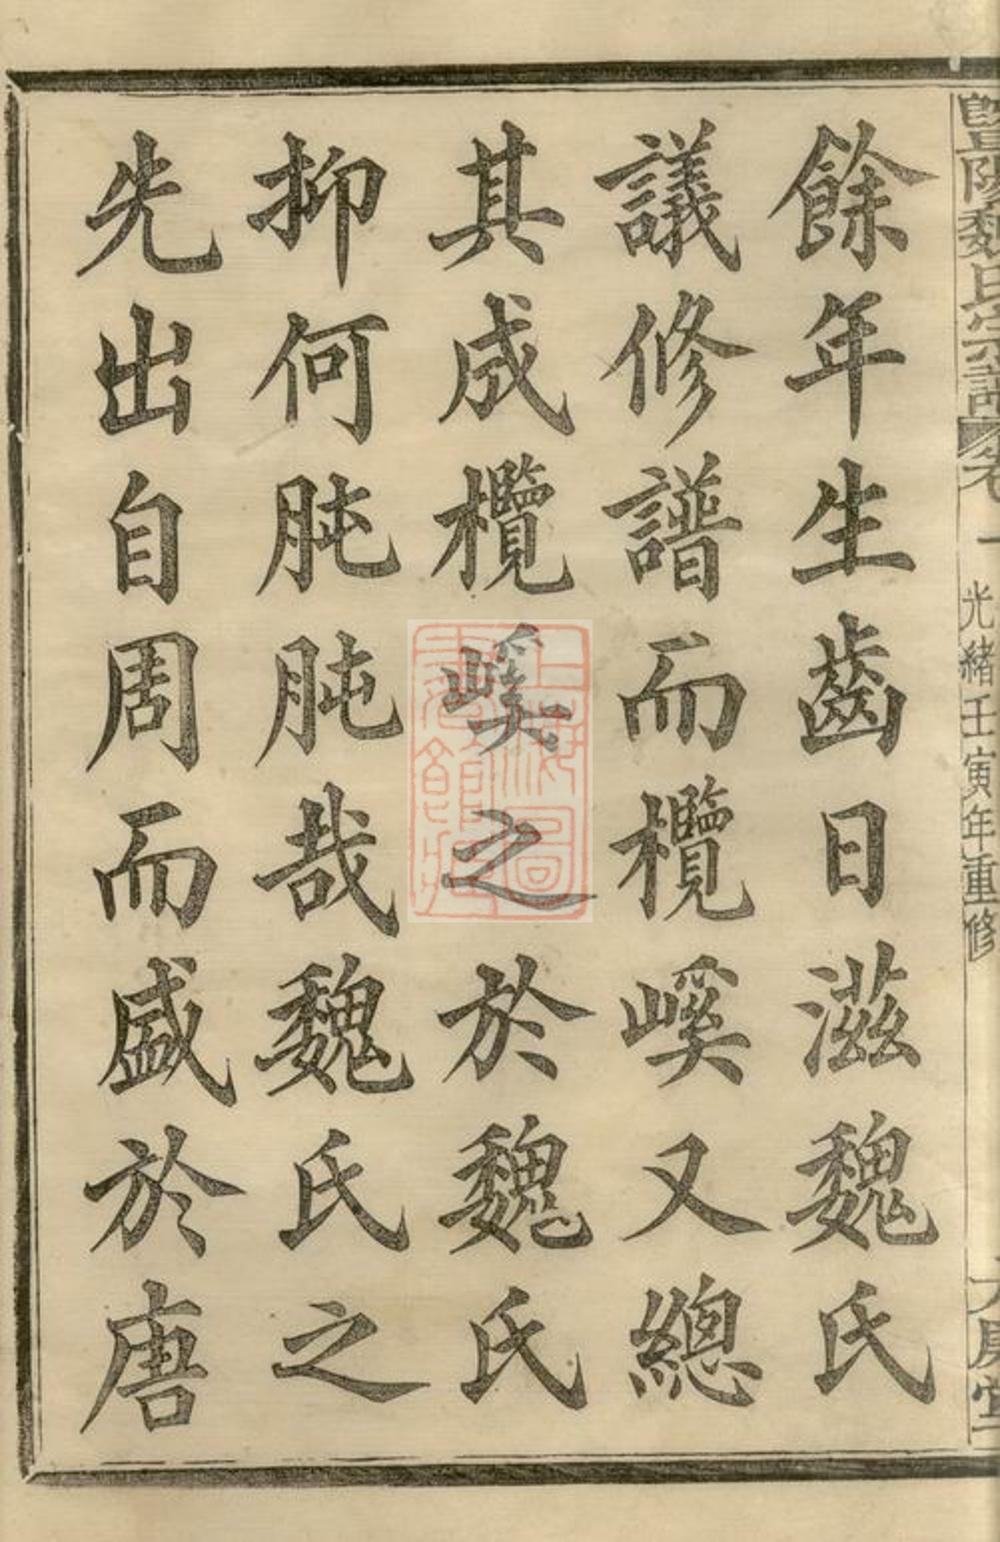 暨陽魏氏宗譜 卷一 光緒壬寅年重修
餘年生齒日滋魏氏
議修譜而欖嵠又總
其成欖嵠之於魏氏
抑何肫肫哉魏氏之
先出自周而盛於唐
上海圖書館藏